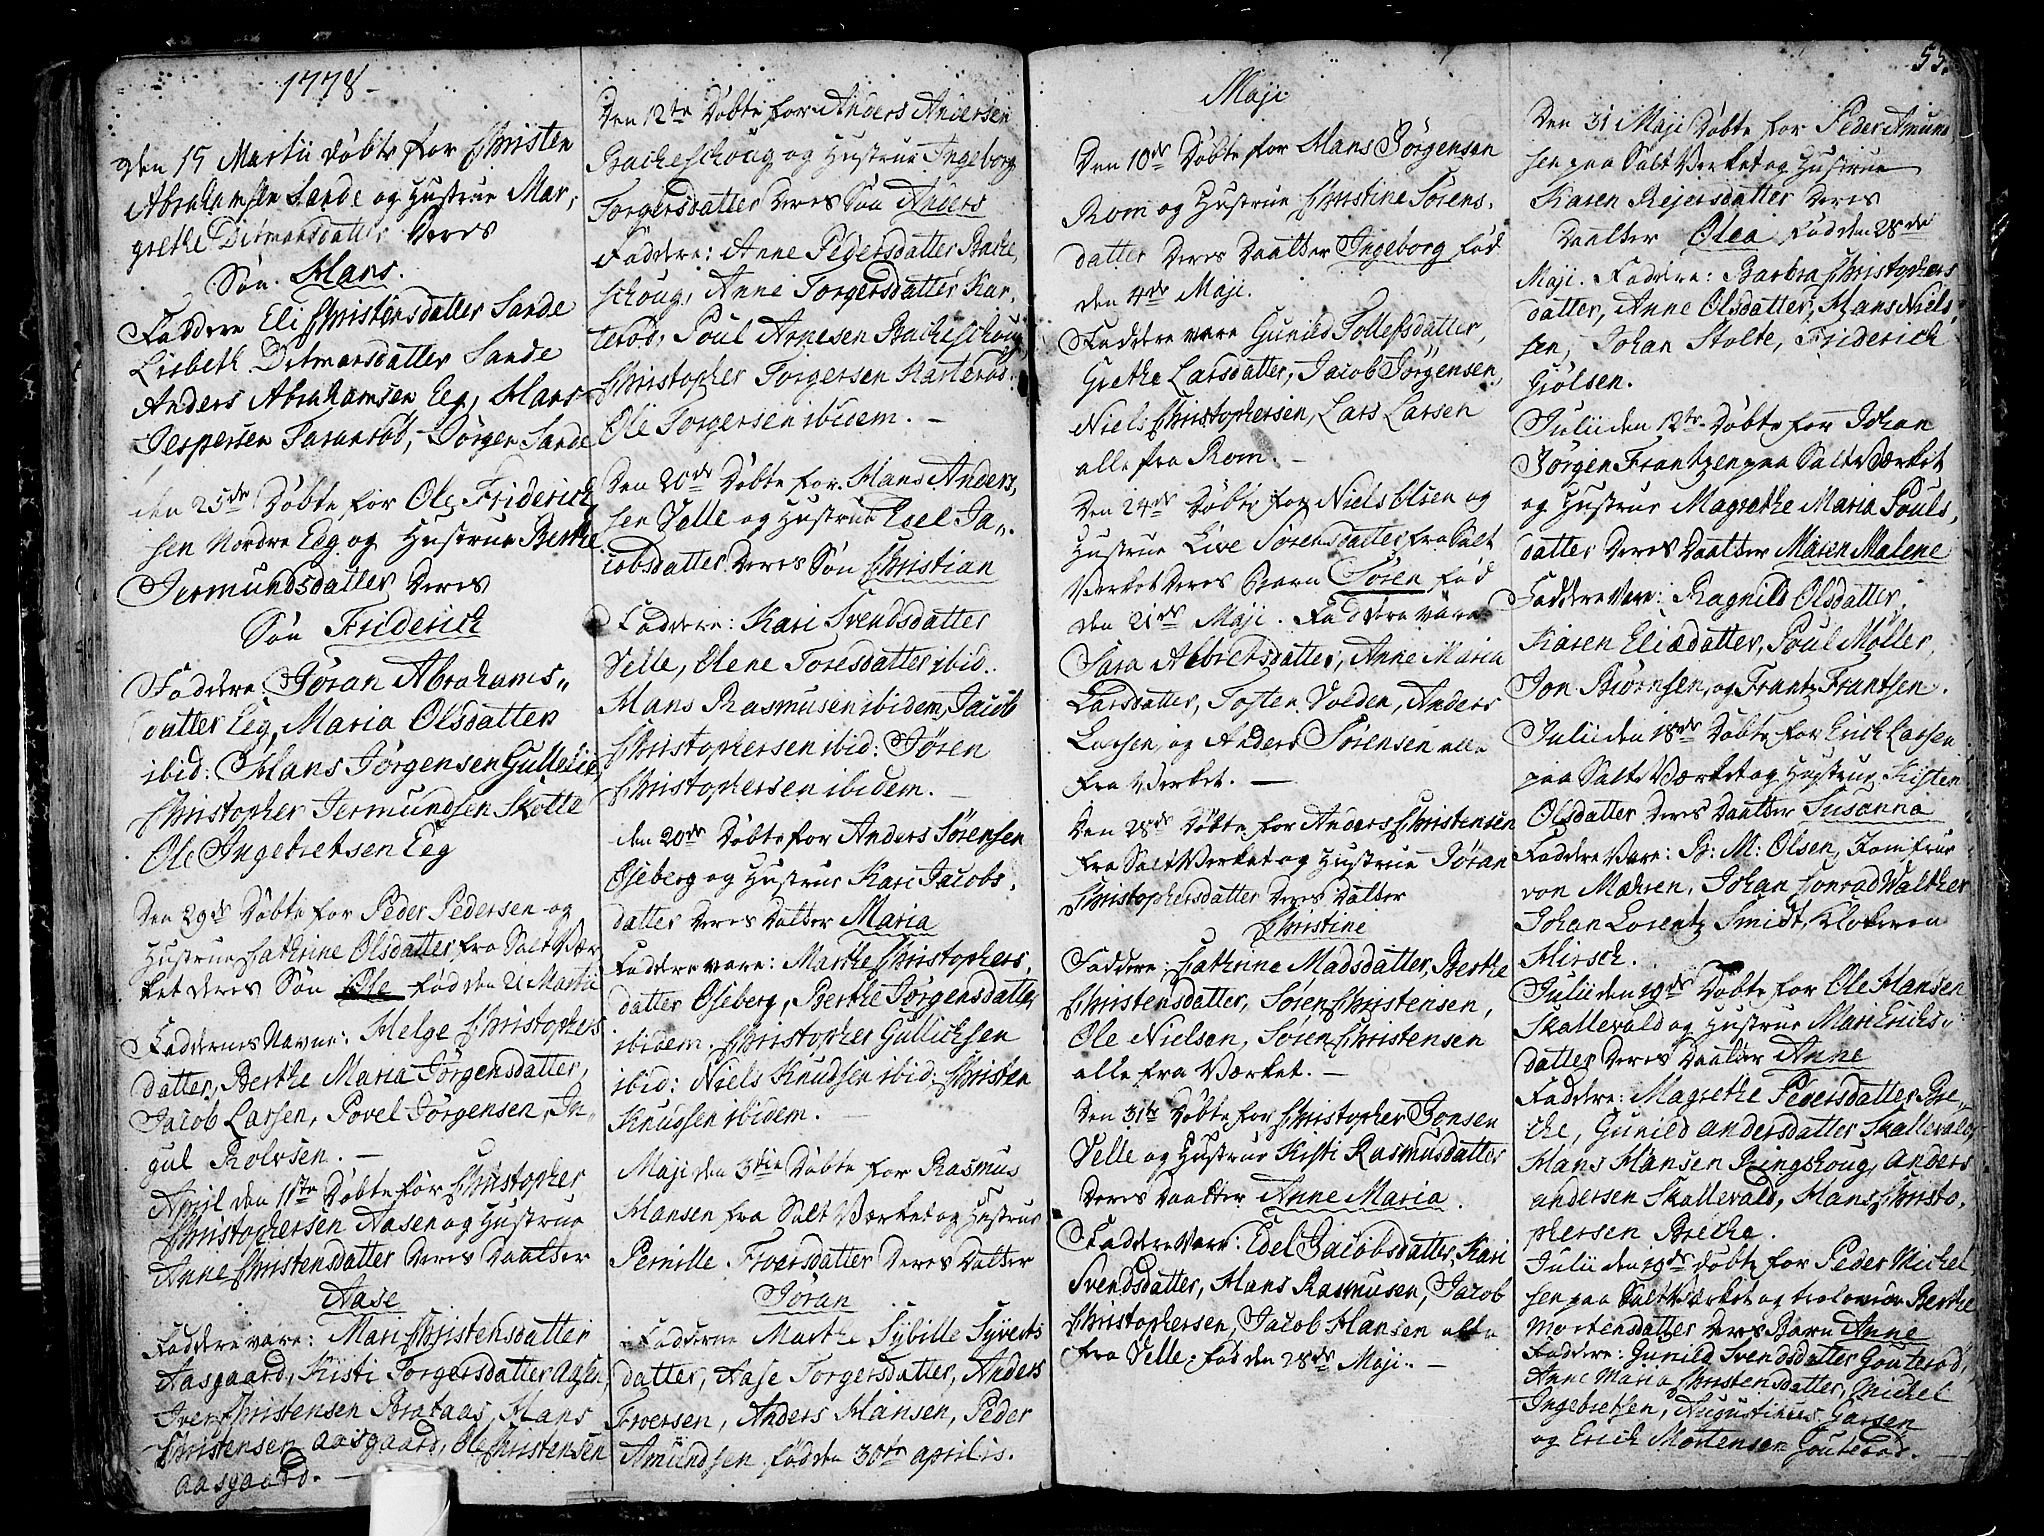 1778
Den 15 Martii døbte for Christen
Abrahamsen Sande og Hustrue Mar-
grethe Ditmarsdatter Deres
Søn. Hans.
Faddere Eli Christensdatter Sande
Lisbeth Ditmarsdatter Sande
Anders Abrahamsen Eeg, Hans
Jespersen Taranrød, Jørgen Sande
den 25de Døbte for Ole Friderich
sen Nordre Eeg og Hustrue Berthe
Jermundsdatter Deres
Søn Friderich
Faddere. Jøran Abrahams-
datter Eeg, Maria Olsdatter
ibid: Hans Jørgensen Gullelie
Christopher Jermundsen Skotte
Ole Ingebretsen Eeg
Den 29de Døbte for Peder Pedersen og
Hustrue Cathrine Olsdatter fra Salt Vær
ket deres Søn Ole fød den 21 Martii
Faddernes Navne: Helge Christophers
datter, Berthe Maria Jørgensdatter,
Jacob Larsen, Povel Jørgensen, In-
gul Rolvsen. -
April den 1ste Døbte for Christopher
Christophersen Aasen og Hustrue
Anne Christensdatter Deres Daatter
Aase
Faddere vare: Mari Christensdatter
Aasgaard, Kisti Torgersdatter Aasen
Iver Christensen Brataas, Hans
Christensen aasgaard, Ole Christensen
aasgaard. -
Den 12te Døbte for Anders Andersen
Backeschoug og Hustrue Ingeborg
Torgersdatter Deres Søn Anders
Faddere: Anne Pedersdatter Backe
schoug, Anne Torgersdatter Kar-
terød, Poul Arnesen Backeschoug
Christopher Torgersen Karterød.
Ole Torgersen ibidem. -
Den 20de Døbte for Hans Anders-
sen Velle og Hustrue Edel Ja-
cobsdatter Deres Søn Christian
Faddere: Kari Svendsdatter
Velle, Olene Toresdatter ibid.
Hans Rasmusen ibidem, Jacob
Christophersen ibid: Søren
Christophersen ibidem. -
den 20de Døbte for Anders Sørensen
Oseberg og Hustrue Kari Jacobs-
datter Deres Datter Maria
Faddere vare: Marthe Christophers
datter Oseberg, Berthe Jørgensdatter
ibidem. Christopher Gullichsen
ibid: Niels Knudsen ibid: Christen
Knudsen ibidem. -
Maji den 3die Døbte for Rasmus
Hansen fra Salt Værket og Hustrue
Pernille Troersdatter Deres Datter
Jøran
Fadderne Marthe Sybille Syverts
datter, Aase Torgersdatter, Anders
Troersen, Anders Hansen, Peder
Amundsen. fød den 30te aprilis.
Maji
Den 10de Døbte for Hans Jørgensen
Rom og Hustrue Christine Sørens-
datter Deres Daatter Ingeborg fød
den 4de Maji.
Faddere vare Gunild Tollefsdatter,
Grethe Larsdatter, Jacob Jørgensen,
Niels Christophersen, Lars Larsen
alle fra Rom. -
Den 24de Døbte for Niels Olsen og
Hustrue Live Sørensdatter fra Salt
Værket Deres Barn Søren fød
den 21de Maji. Faddere vare
Sara Albretsdatter, Anne Maria
Larsdatter, Tosten Volden, Anders
Larsen, og Anders Sørensen alle
fra Værket. -
Den 28de Døbte for Anders Christensen
fra Salt Værket og Hustrue Jøran
Christophersdatter Deres Datter
Christine
Faddere: Cathrine Madsdatter, Berthe
Christensdatter, Søren Christensen,
Ole Nielsen, Søren Christensen
alle fra Værket. -
Den 31te Døbte for Christopher Jonsen
Velle og Hustrue Kisti Rasmusdatter
Deres Daatter Anne Maria.
Faddere Vare: Edel Jacobsdatter, Kari
Svendsdatter, Hans Rasmusen, Jacob
Christophersen, Jacob Hansen alle
fra Velle, fød den 28de Maji. -
55.
Den 31 Maji Døbte for Peder Amund
sen paa Salt Værket og Hustrue
Karen Rejersdatter Deres
Daatter Olea fød den 28de
Maji. Faddere: Barbra Christophers
datter, Anne Olsdatter, Hans Niels
sen, Johan Stolte, Friderich
Giølsen.
Julii den 12te Døbte for Johan
Jørgen Frantzen paa Salt Værket
og Hustrue Magrethe Maria Pouls-
datter Deres Daatter Maren Malene
Faddere Vare: Ragnild Olsdatter,
Karen Eliædatter, Poul Møller,
Jon Biørnsen, og Frantz Frantsen.
Julii den 18de Døbte for Erich Larsen
paa Salt Værket og Hustrue Kisten
Olsdatter Deres Daatter Susanna
Faddere Vare: B: M: Olsen, Jomfrue
von Mehren, Johan Conrad Walther
Johan Lorentz Smidt, Klokeren
Hirsch.
Julii den 19de Døbte for Ole Hansen
Skallevald og Hustrue Mari Erichs-
datter Deres Daatter Anne
Faddere: Magrethe Pedersdatter Bre-
che, Gunild andersdatter Skallevald,
Hans Hansen Ringshoug, Anders
andersen Skallevald, Hans Christo-
phersen Breche.
Julii den 19de døbte for Peder Michel
sen paa Salt Værket og Berthe
Mortensdatter Deres Barn Anne
Faddere: Gunild Svendsdatter Gouterød,
Anne Maria Christensdatter, Michel
Ingebretsen, Augustinus Larsen
og Erich Mortensen Gouterød. -